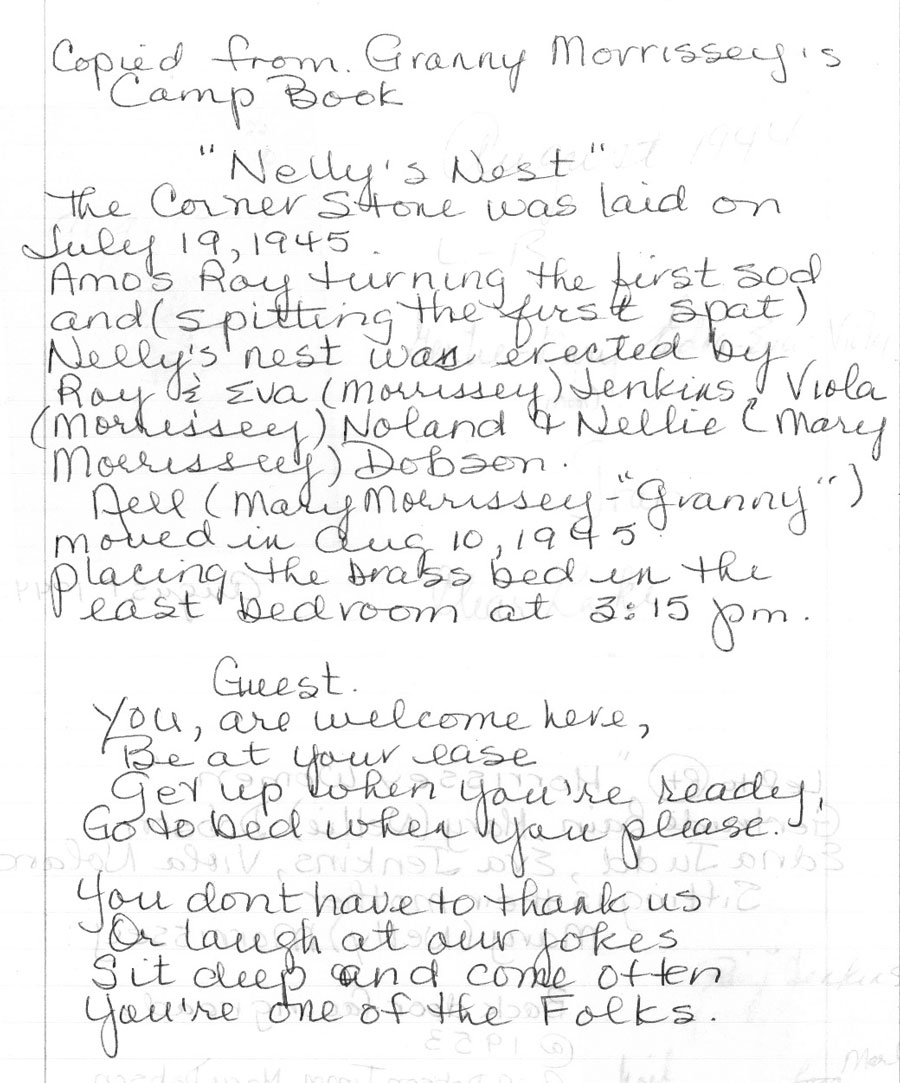 Copied from. Granny Morrissey's
Camp Book
"Nelly's Nest"
The Corner Stone was laid on
July 19, 1945.
Amos Roy turning the first sod
and (spitting the first spat)
Nelly's nest was erected by
Roy & Eva (Morrissey) Jenkins, Viola
(Morrissey) Noland & Nellie (Mary
Morrissey) Dobson.
Nell (Mary Morrissey - "Granny")
moved in Aug 10, 1945
placing the brass bed in the
east bedroom at 3:15 pm.
Guest.
You, are welcome here,
Be at your ease
Get up when you're ready,
Go to bed when you please.
You dont have to thank us
Or laugh at our jokes
Sit deep and come often
You're one of the Folks.